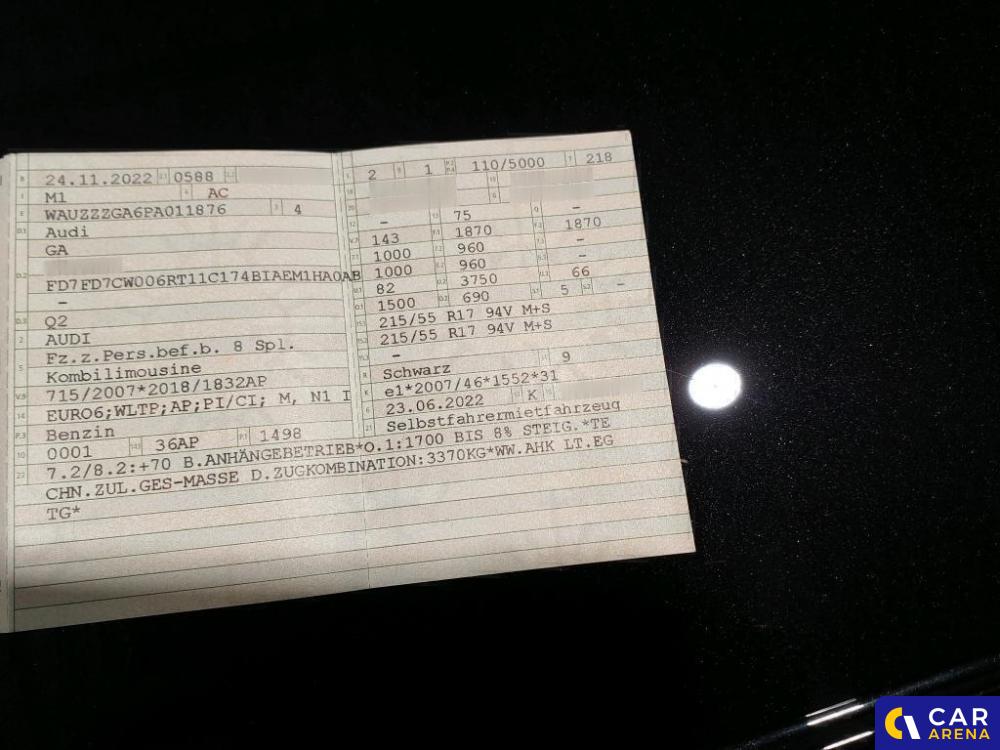 24.11.2022 0588
M1 AC
WAUZZZGA6PA011876 4
Audi
GA
FD7FD7CW006RT11C174BIAEM1HA0AB
–
Q2
AUDI
Fz.z.Pers.bef.b. 8 Spl.
Kombilimousine
715/2007*2018/1832AP
EURO6;WLTP;AP;PI/CI; M, N1 I
Benzin
0001 36AP 1498
2 1 110/5000 218
– 75 –
143 1870 1870
1000 960 –
1000 960 –
82 3750 66
1500 690 5 –
215/55 R17 94V M+S
215/55 R17 94V M+S
–
Schwarz 9
e1*2007/46*1552*31
23.06.2022 K
Selbstfahrermietfahrzeug
7.2/8.2:+70 B.ANHÄNGEBETRIEB*O.1:1700 BIS 8% STEIG.*TE
CHN.ZUL.GES-MASSE D.ZUGKOMBINATION:3370KG*WW.AHK LT.EG
TG*
CAR
ARENA